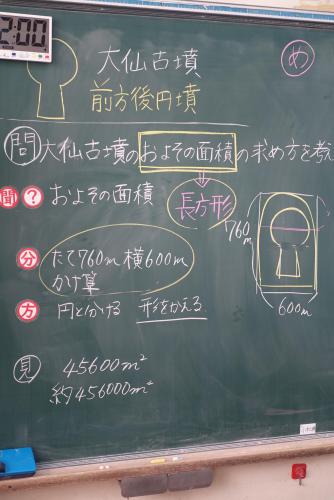 2:00
大仙古墳
め
前方後円墳
問 大仙古墳のおよその面積の求め方を考
問 ? およその面積
長方形
分 たて760m 横600m
かけ算
760m
600m
方 円と分ける 形をかえる
見 45600m²
約456000m²